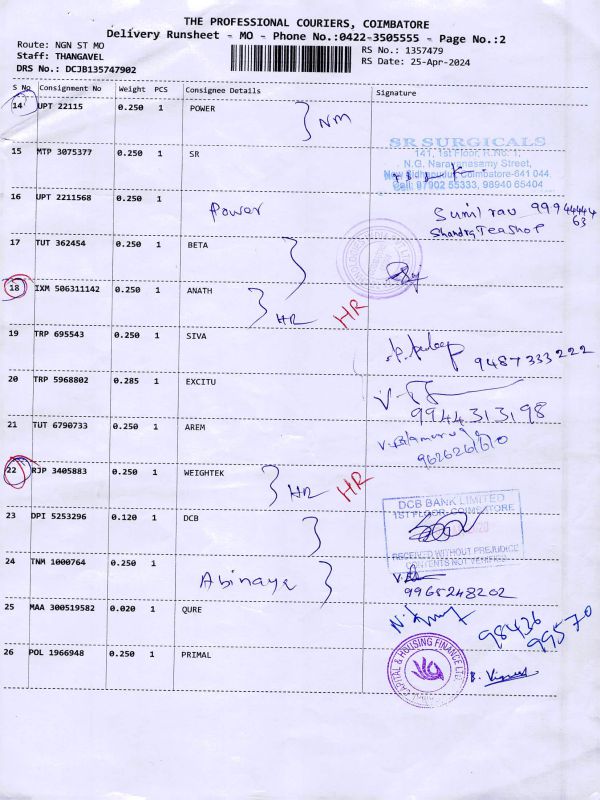 THE PROFESSIONAL COURIERS, COIMBATORE
Delivery Runsheet - MO - Phone No.:0422-3505555 - Page No.:2
Route: NGN ST MO
Staff: THANGAVEL
DRS No.: DCJB135747902
RS No.: 1357479
RS Date: 25-Apr-2024
S No Consignment No Weight PCS Consignee Details Signature
14 UPT 22115 0.250 1 POWER
NM
15 MTP 3075377 0.250 1 SR
SR SURGICALS
141, 1st Floor, R.No. 1,
N.G. Narayanasamy Street,
New Sidhapudur, Coimbatore-641 044.
Cell: 97902 55333, 98940 65404
16 UPT 2211568 0.250 1
Power
Sunil rau 99944444
63
Shandra Tea Shop
17 TUT 362454 0.250 1 BETA
18 IXM 506311142 0.250 1 ANATH
HR HR
19 TRP 695543 0.250 1 SIVA
9487333222
20 TRP 5968802 0.285 1 EXCITU
9944313198
21 TUT 6790733 0.250 1 AREM
22 RJP 3405883 0.250 1 WEIGHTEK
HR HR
23 DPI 5253296 0.120 1 DCB
DCB BANK LIMITED
1ST FLOOR-COIMBATORE
RECEIVED WITHOUT PREJUDICE
CONTENTS NOT VERIFIED
24 TNM 1000764 0.250 1
Abinaya
9965248202
25 MAA 300519582 0.020 1 QURE
98436
99570
26 POL 1966948 0.250 1 PRIMAL
CAPITAL & HOUSING FINANCE LTD